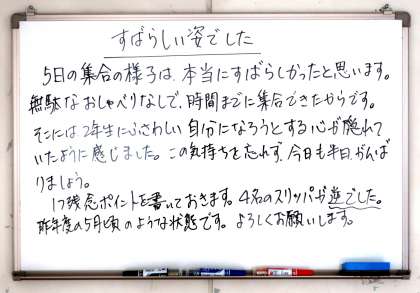 すばらしい姿でした
5日の集合の様子は、本当にすばらしかったと思います。
無駄なおしゃべりなしで、時間までに集合できたからです。
そこには2年生にふさわしい自分になろうとする心が隠れて
いたように感じました。この気持ちを忘れず、今日も半日、がんば
りましょう。
1つ残念ポイントを書いておきます。4名のスリッパが逆でした。
昨年度の5月頃のような状態です。よろしくお願いします。